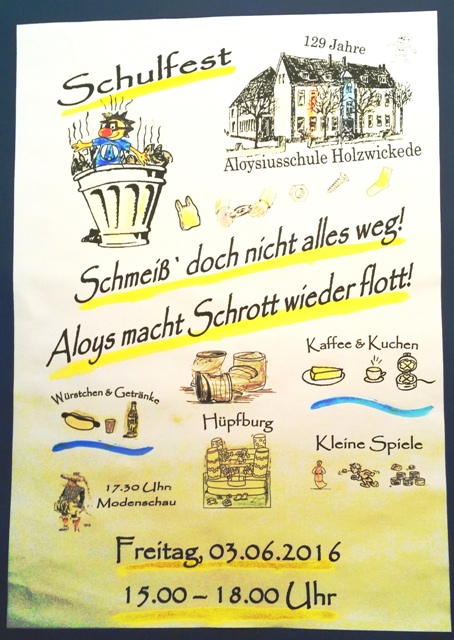 Schulfest
129 Jahre
Aloysiusschule Holzwickede
Schmeiß` doch nicht alles weg!
Aloys macht Schrott wieder flott!
Kaffee & Kuchen
Würstchen & Getränke
Hüpfburg
Kleine Spiele
17.30 Uhr
Modenschau
Freitag, 03.06.2016
15.00 – 18.00 Uhr